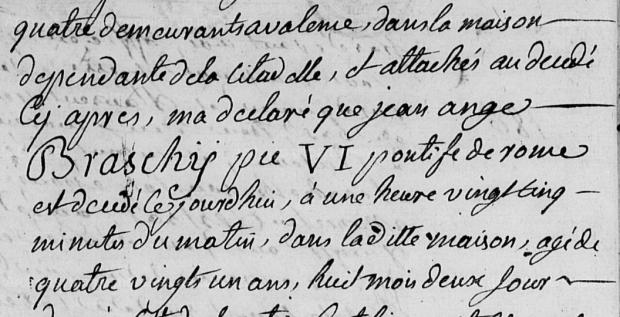 quatre demeurants a valence, dans la maison
dependante de la citadelle, et attachés au decedé
cy apres, ma declaré que jean ange
Braschis pie VI pontife de rome
est decedé cejourdhui, à une heure vingt cinq
minutes du matin, dans la ditte maison, agé de
quatre vingts un ans, huit mois deux jour